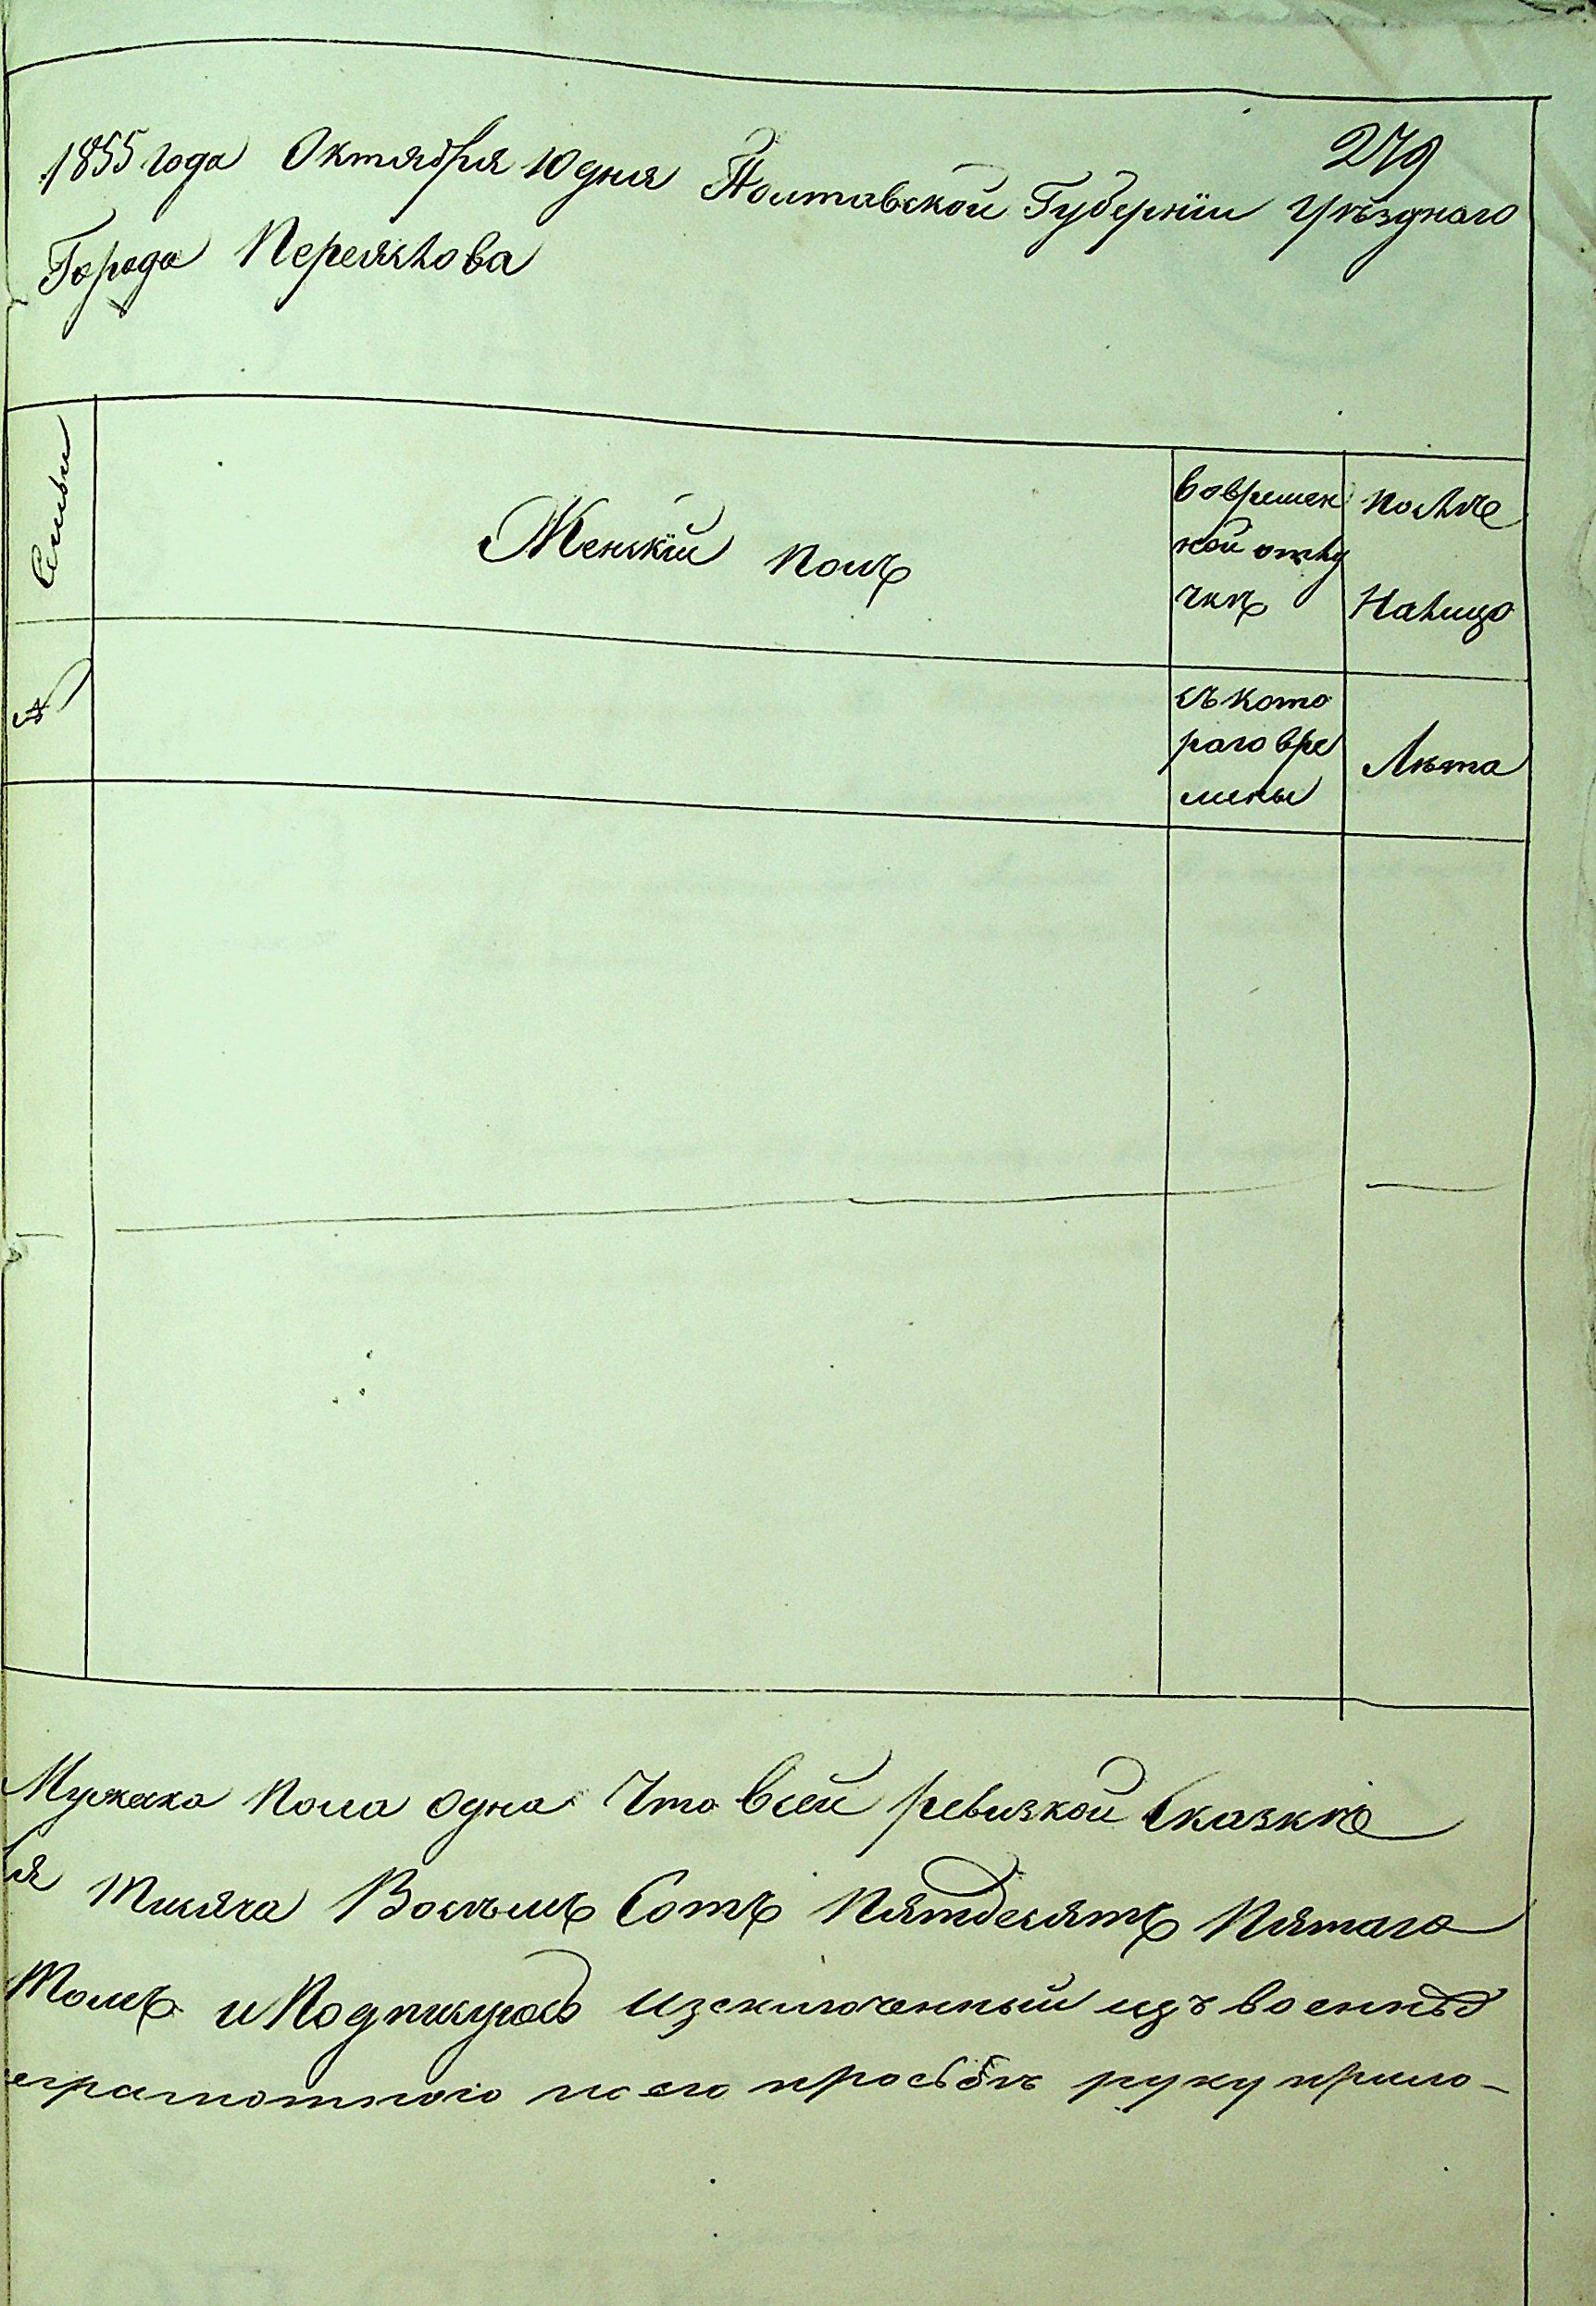 279
1855 года Октября 10 дня Полтавской Губернїи Уѣзднаго
Города Переяслова
Семьи
Женскїй полъ
вовремен
ной отлу
чкѣ
после
Налицо
№
съ кото
раго вре
мены
Лѣта
Мужска пола одна что всей ревизкой сказкѣ
ся тисяча восъмъ сотъ пятдесятъ пятаго
томъ и подпишусь изсключенный изъ военнъ
еграмотного по его просьбѣ руку прило-